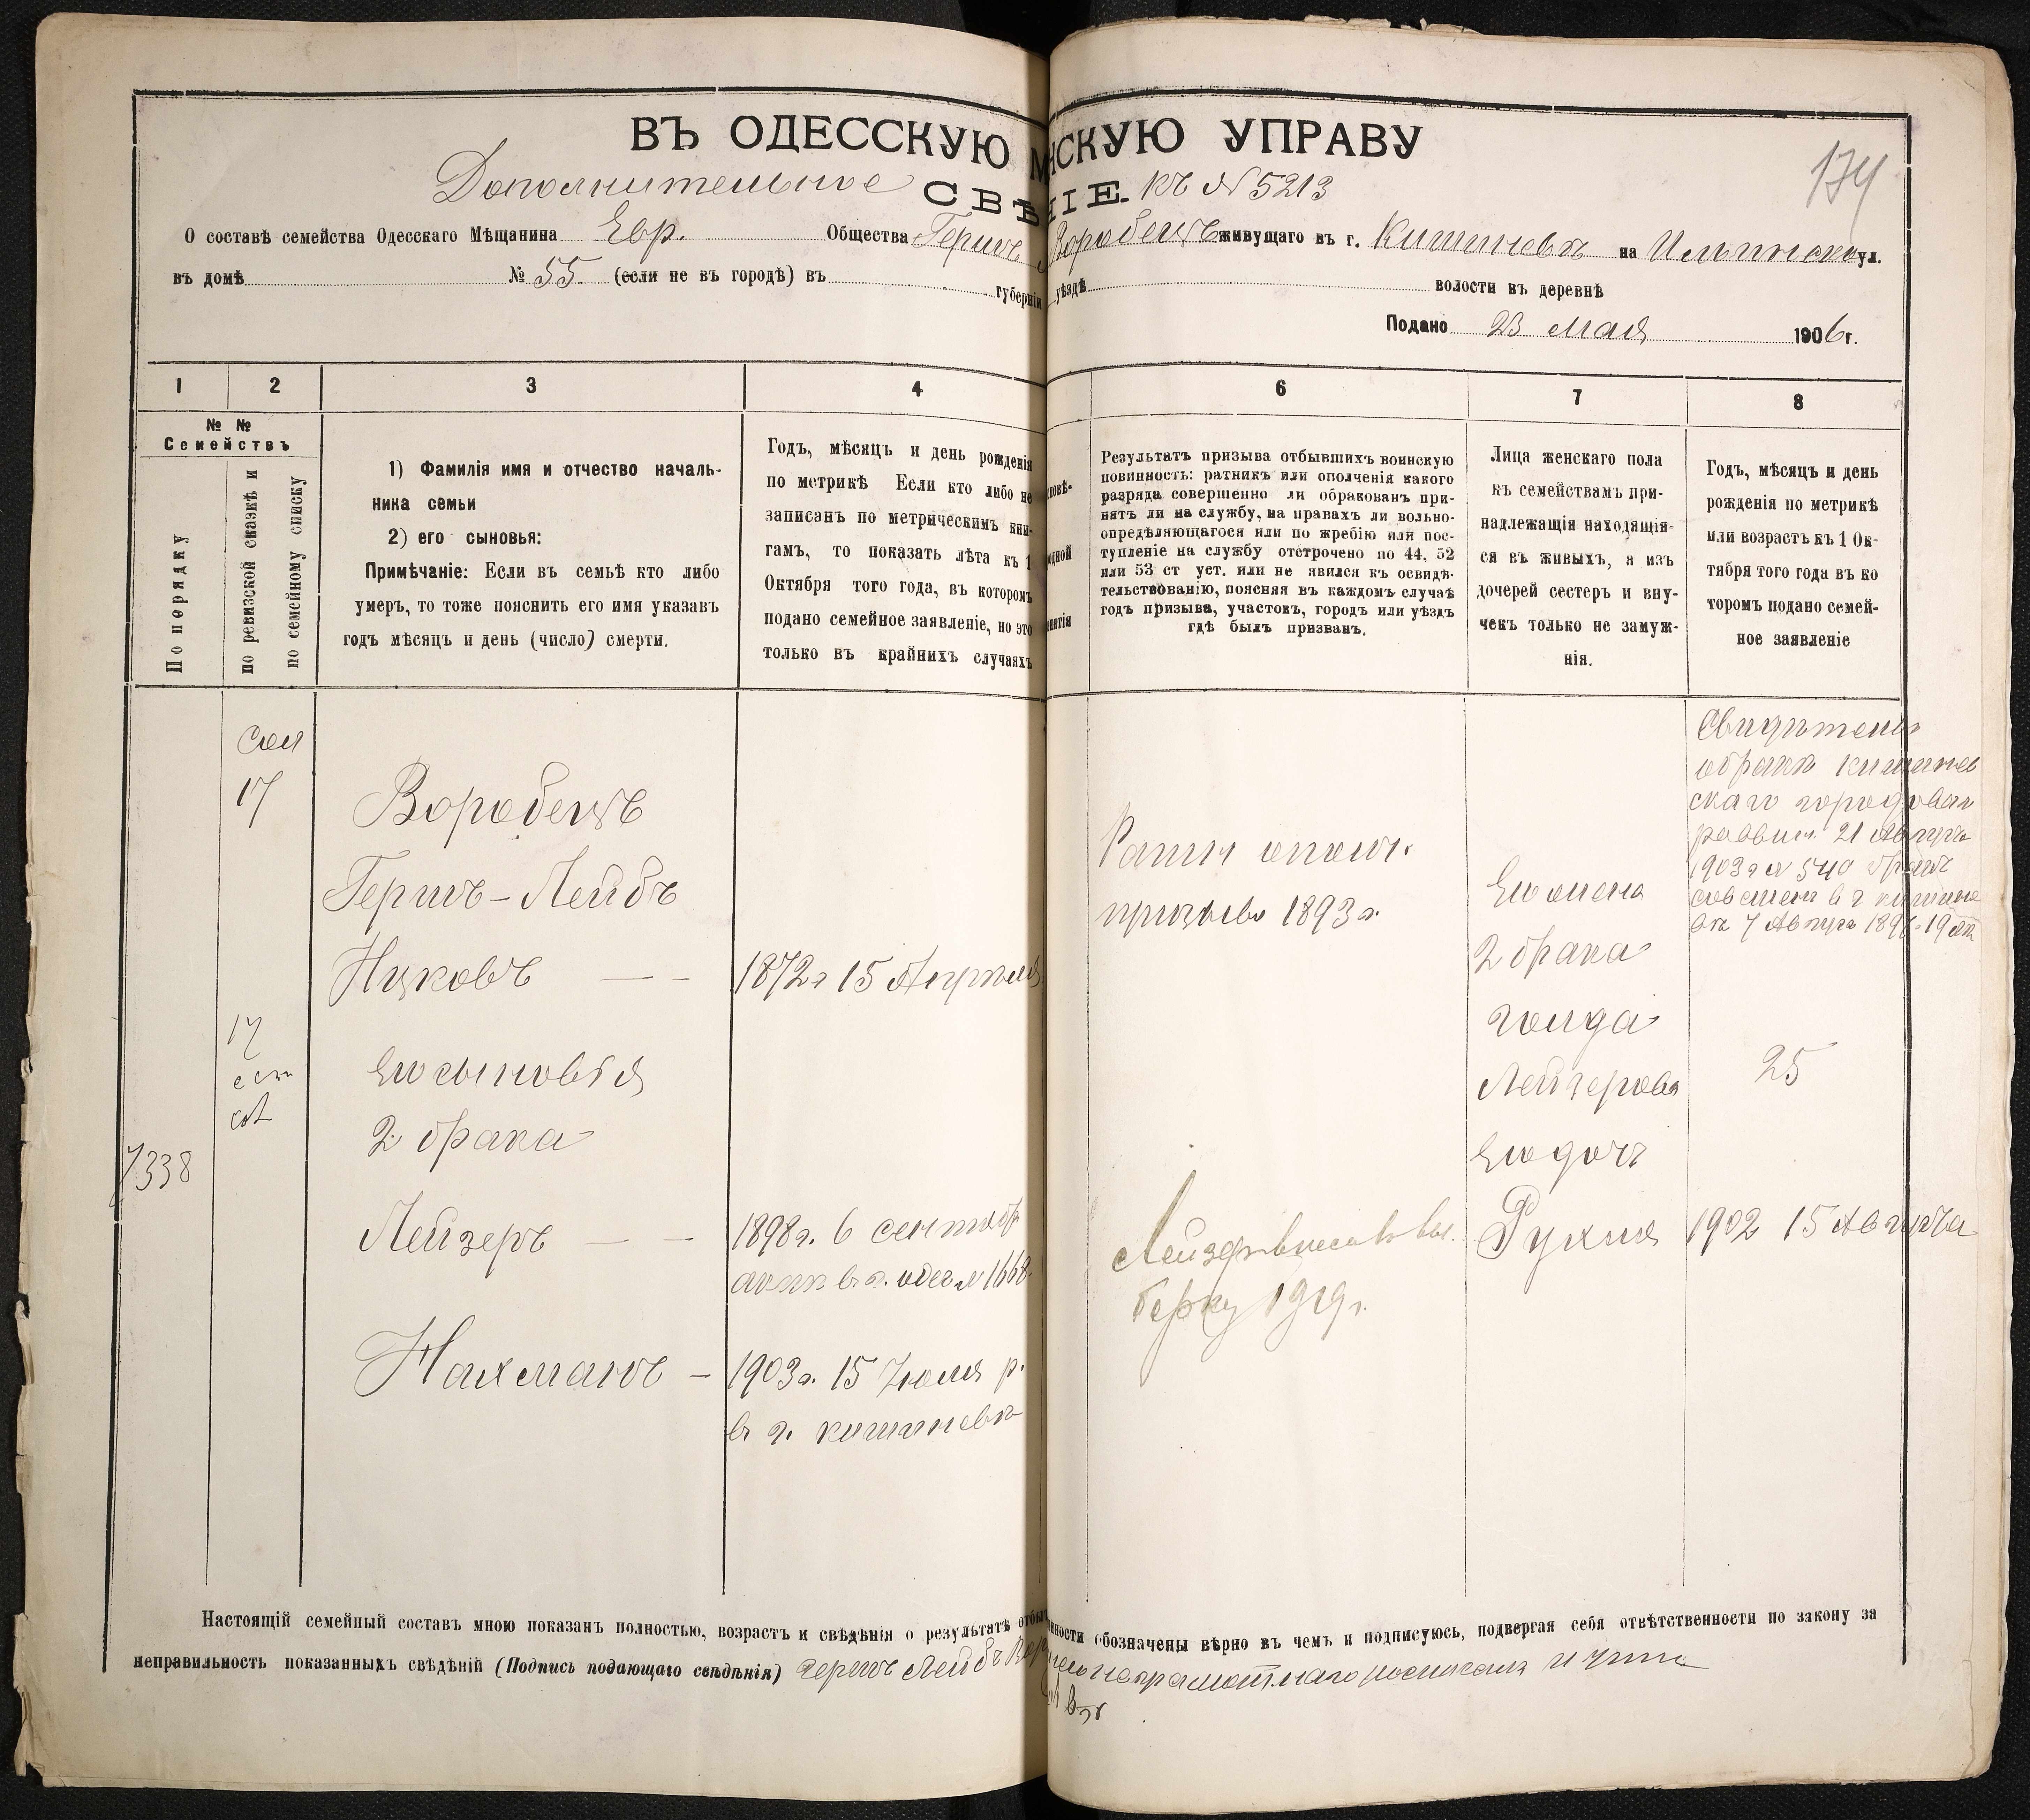 174
ВЪ ОДЕССКУЮ М НСКУЮ УПРАВУ
Дополнительное СВѢ НІЕ. къ № 5213
О составѣ семейства Одесскаго Мѣщанина Евр. Общества Гершъ Воробецъ живущаго въ г. Кишиневѣ на Ильинской ул.
въ домѣ № 55 (если не въ городѣ) въ губерніи уѣздѣ волости въ деревнѣ
Подано 23 мая 1906 г.
1 2 3 4 6 7 8
№ №
Семействъ
По порядку
по ревизской сказкѣ и
по семейному списку
1) Фамилія имя и отчество началь-
ника семьи
2) его сыновья:
Примѣчаніе: Если въ семьѣ кто либо
умеръ, то тоже пояснить его имя указавъ
годъ мѣсяцъ и день (число) смерти.
Годъ, мѣсяцъ и день рожденія
по метрикѣ Если кто либо не
записанъ по метрическимъ кни-
гамъ, то показать лѣта къ 1
Октября того года, въ которомъ
подано семейное заявленіе, но это
только въ крайнихъ случаяхъ
Результатъ призыва отбывшихъ воинскую
повинность: ратникъ или ополченія какого
разряда совершенно ли обракованъ при-
нятъ ли на службу, на правахъ ли вольно-
опредѣляющагося или по жребію или пос-
тупленіе на службу отсрочено по 44, 52
или 53 ст уст. или не явился къ освидѣ-
тельствованію, поясняя въ каждомъ случаѣ
годъ призыва, участокъ, городъ или уѣздъ
гдѣ былъ призванъ.
Лица женскаго пола
къ семействамъ при-
надлежащія находящія-
ся въ живыхъ, а изъ
дочерей сестеръ и вну-
чекъ только не замуж-
нія.
Годъ, мѣсяцъ и день
рожденія по метрикѣ
или возрастъ къ 1 Ок-
тября того года въ ко
торомъ подано семей-
ное заявленіе
17
Воробецъ
Гершъ-Лейбъ
Ицковъ — — 1872 г 15 Апрѣля
17
его сыновья
2 брака
7338
Лейзеръ — — 1898 г. 6 сентябр
в г. Одес № 1668.
Нахманъ — 1903 г. 15 Іюля р.
в г. кишиневѣ
Ратн ополч.
призыва 1893 г.
Лейзеръ
1919 г.
Его жена
2 брака
Голда
Лейзерова
25
Его дочь
Рухля 1902 15 Августа
Свидѣтель
о бракѣ кишинев
скаго городоваг
раввин. 21 Август
1903 г № 540 бракъ
совешен в г кишине
вѣ 7 Августа 189
Настоящій семейный составъ мною показанъ полностью, возрастъ и свѣдѣнія о результатѣ отбы нности обозначены вѣрно въ чемъ и подписуюсь, подвергая себя отвѣтственности по закону за
неправильность показанныхъ свѣдѣній (Подпись подающаго свѣдѣнія) Гершъ Лейбъ Вор неграмотнаго росписался